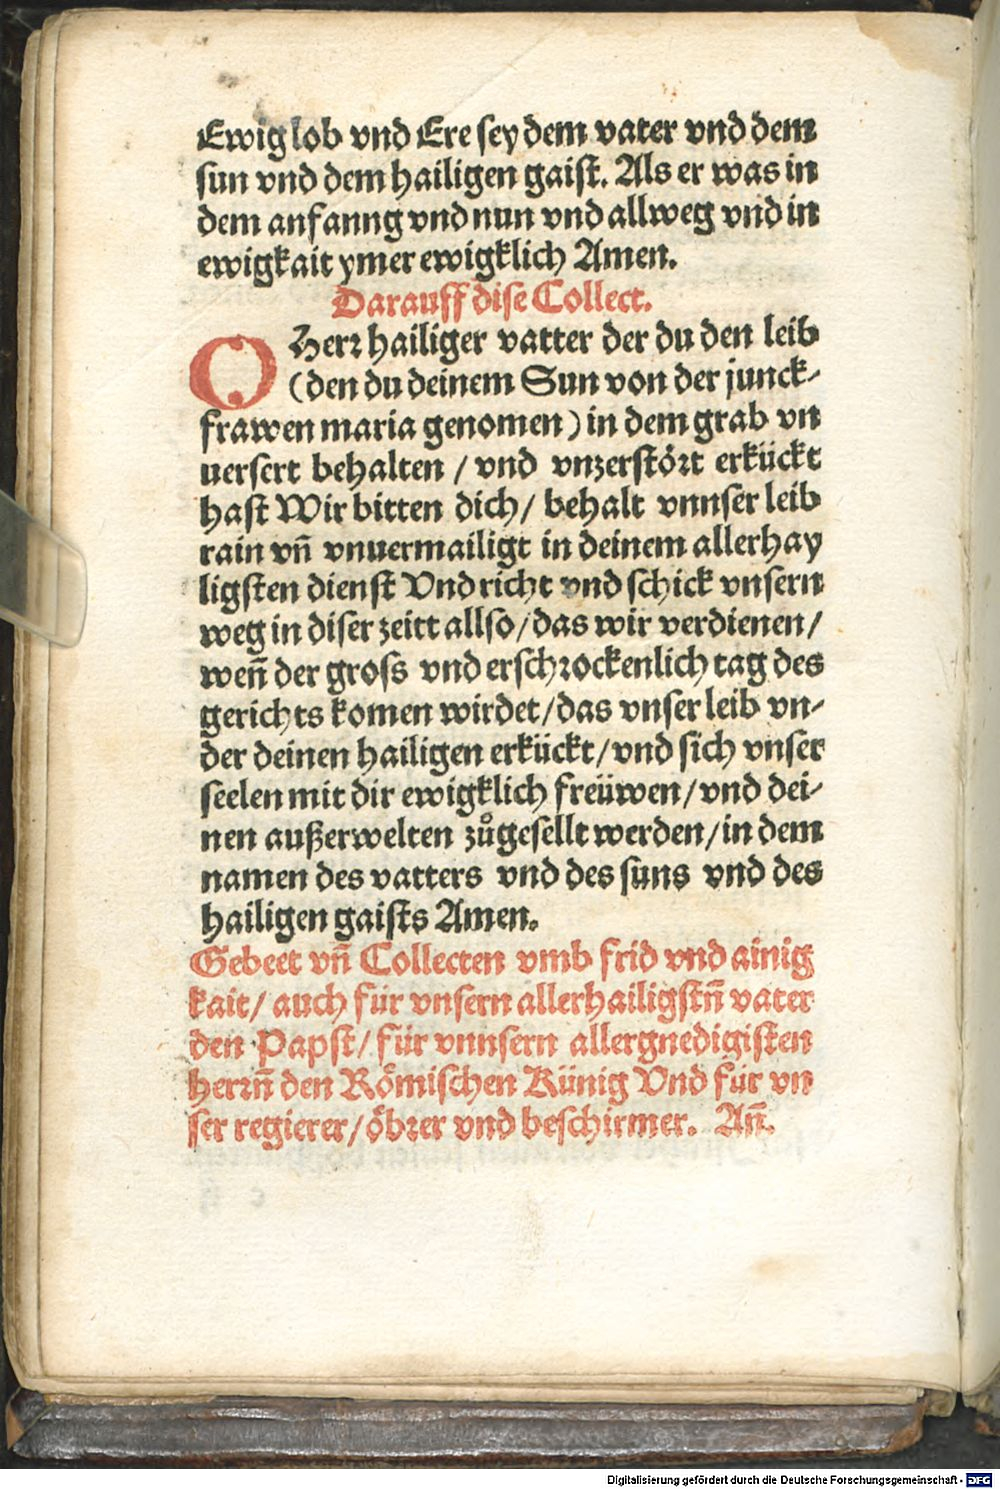 Ewig lob vnd Ere sey dem vater vnd dem
sun vnd dem hailigen gaist. Als er was in
dem anfanng vnd nun vnd allweg vnd in
ewigkait ymer ewigklich Amen.
Darauff dise Collect.
O Herr hailiger vatter der du den leib
(den du deinem Sun von der junck-
frawen maria genomen) in dem grab vn
uersert behalten / vnd vnzerstört erkückt
hast Wir bitten dich/ behalt vnnser leib
rain vn̄ vnuermailigt in deinem allerhay
ligsten dienst Vnd richt vnd schick vnsern
weg in diser zeitt allso/das wir verdienen/
wen̄ der gross vnd erschrockenlich tag des
gerichts komen wirdet/das vnser leib vn-
der deinen hailigen erkückt/vnd sich vnser
seelen mit dir ewigklich freüwen/vnd dei-
nen außerwelten zůgesellt werden/in dem
namen des vatters vnd des suns vnd des
hailigen gaists Amen.
Gebeet vn̄ Collecten vmb frid vnd ainig
kait/ auch für vnsern allerhailigstn̄ vater
den Papst/ für vnnsern allergnedigisten
herrn̄ den Römischen Künig Vnd für vn
ser regierer/öbrer vnd beschirmer. An̄.
Digitalisierung gefördert durch die Deutsche Forschungsgemeinschaft - DFG